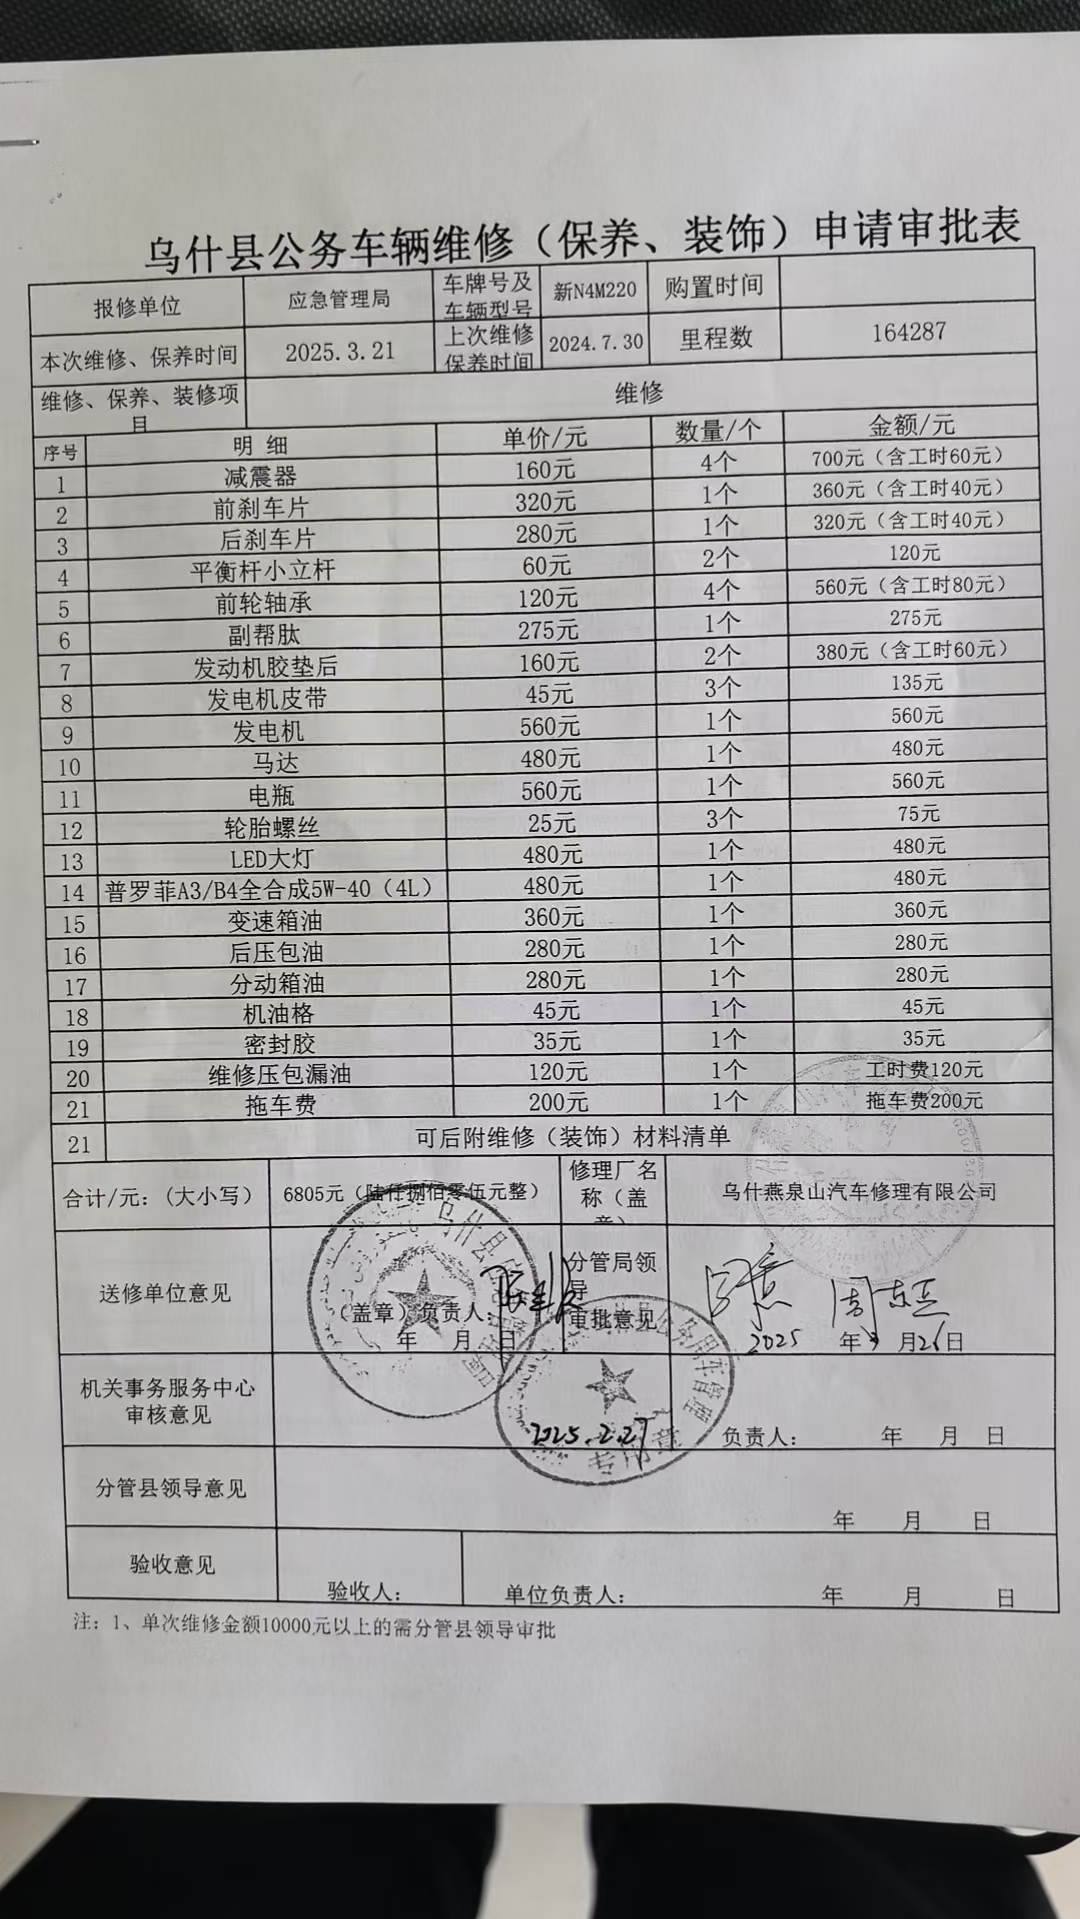 乌什县公务车辆维修（保养、装饰）申请审批表
报修单位 应急管理局 车牌号及车辆型号 新N4M220 购置时间
本次维修、保养时间 2025.3.21 上次维修保养时间 2024.7.30 里程数 164287
维修、保养、装修项目 维修
序号 明 细 单价/元 数量/个 金额/元
1 减震器 160元 4个 700元（含工时60元）
2 前刹车片 320元 1个 360元（含工时40元）
3 后刹车片 280元 1个 320元（含工时40元）
4 平衡杆小立杆 60元 2个 120元
5 前轮轴承 120元 4个 560元（含工时80元）
6 副帮肽 275元 1个 275元
7 发动机胶垫后 160元 2个 380元（含工时60元）
8 发电机皮带 45元 3个 135元
9 发电机 560元 1个 560元
10 马达 480元 1个 480元
11 电瓶 560元 1个 560元
12 轮胎螺丝 25元 3个 75元
13 LED大灯 480元 1个 480元
14 普罗菲A3/B4全合成5W-40（4L） 480元 1个 480元
15 变速箱油 360元 1个 360元
16 后压包油 280元 1个 280元
17 分动箱油 280元 1个 280元
18 机油格 45元 1个 45元
19 密封胶 35元 1个 35元
20 维修压包漏油 120元 1个 工时费120元
21 拖车费 200元 1个 拖车费200元
21 可后附维修（装饰）材料清单
合计/元：（大小写） 6805元（陆仟捌佰零伍元整） 修理厂名称（盖章） 乌什燕泉山汽车修理有限公司
送修单位意见 （盖章）负责人： 年 月 日 分管局领导审批意见 2025 年3月26日
机关事务服务中心审核意见 2025.2.27 负责人： 年 月 日
公务用车管理
专用章
分管县领导意见 年 月 日
验收意见 验收人： 单位负责人： 年 月 日
注：1、单次维修金额10000元以上的需分管县领导审批